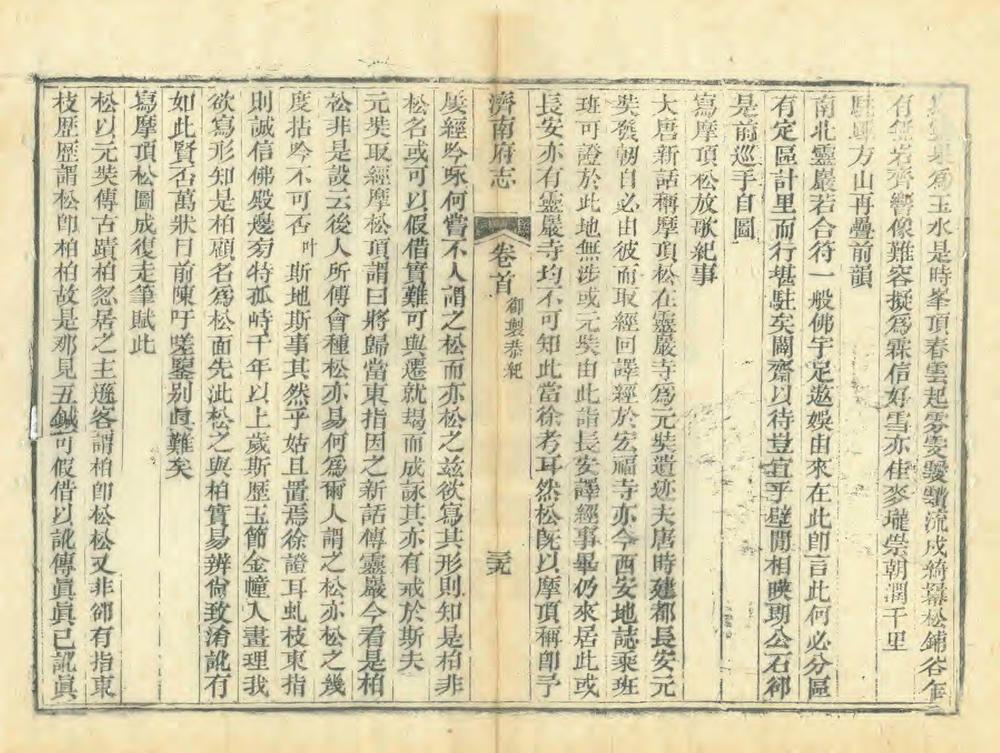 泉爲玉水是時峯頂春雲起雰雯靉靆流成綺羃松鋪谷
有無岩齊響像難容擬爲霖信好雪亦佳麥壠崇朝潤千里
方山再疊前韻
南北靈巖若合符一般佛宇足遨娛由來在此卽言此何必分區
有定區計里而行堪駐矣闢齋以待豈宜乎壁間相映朗公石祁
是前巡手自圖
寫摩頂松放歌紀事
大唐新話稱摩頂松在靈巖寺爲元奘遺迹夫唐時建都長安元
奘發軔自必由彼而取經回譯經於宏福寺亦今西安地誌乘班
班可證於此地無涉或元奘由此詣長安譯經事畢仍來居此或
長安亦有靈巖寺均不可知此當徐考耳然松旣以摩頂稱卽予
濟南府志 卷首 御製恭紀 三九
屢經吟咏何嘗不人謂之松而亦松之玆欲寫其形則知是柏非
松名或可以假借實難可與遷就朅而成詠其亦有戒於斯夫
元奘取經摩松頂謂曰將歸當東指因之新話傳靈巖今看是柏
松非是設云後人所傅會種松亦易何爲爾人謂之松亦松之幾
度拈吟不可否叶斯地斯事其然乎姑且置焉徐證耳虬枝東指
則誠信佛殿邊旁特孤峙千年以上歲斯歷玉節金幢人畫理我
欲寫形知是柏顧名爲松面先泚松之與柏實易辨尙致淆訛有
如此賢否萬狀日前陳吁嗟鑒别眞難矣
寫摩頂松圖成復走筆賦此
松以元奘傳古蹟柏忽居之主遜客謂柏卽松松又非郤有指東
枝歷歷謂松卽柏柏故是那見五鍼可假借以訛傳眞眞已訛眞